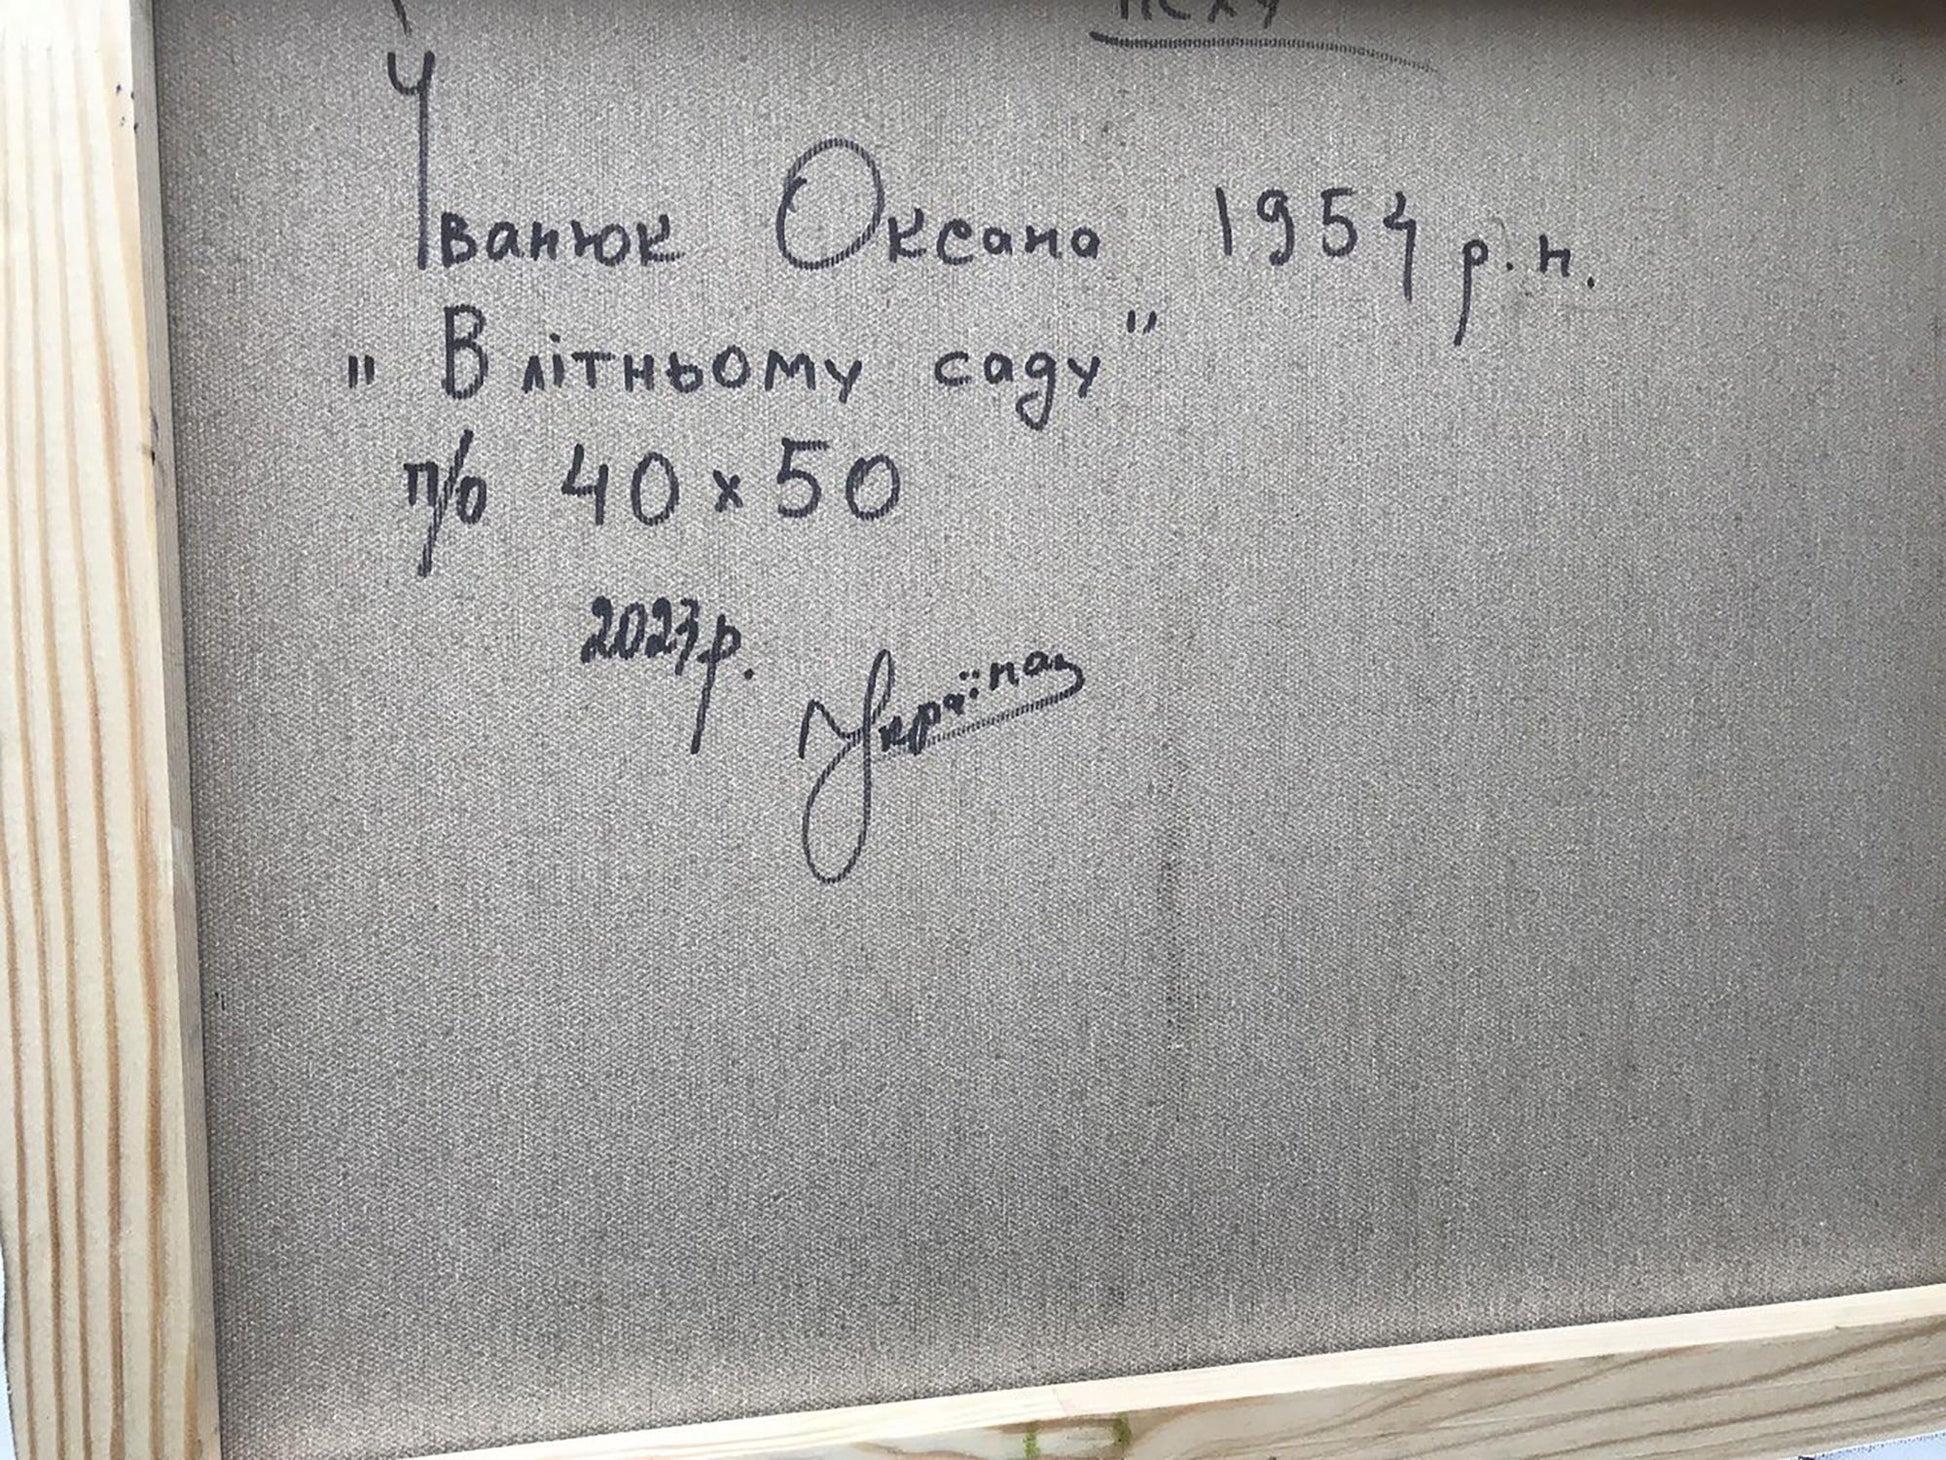 Іванюк Оксана 1954 р.н.
"В літньому саду"
п/о 40х50
2023р.
Україна